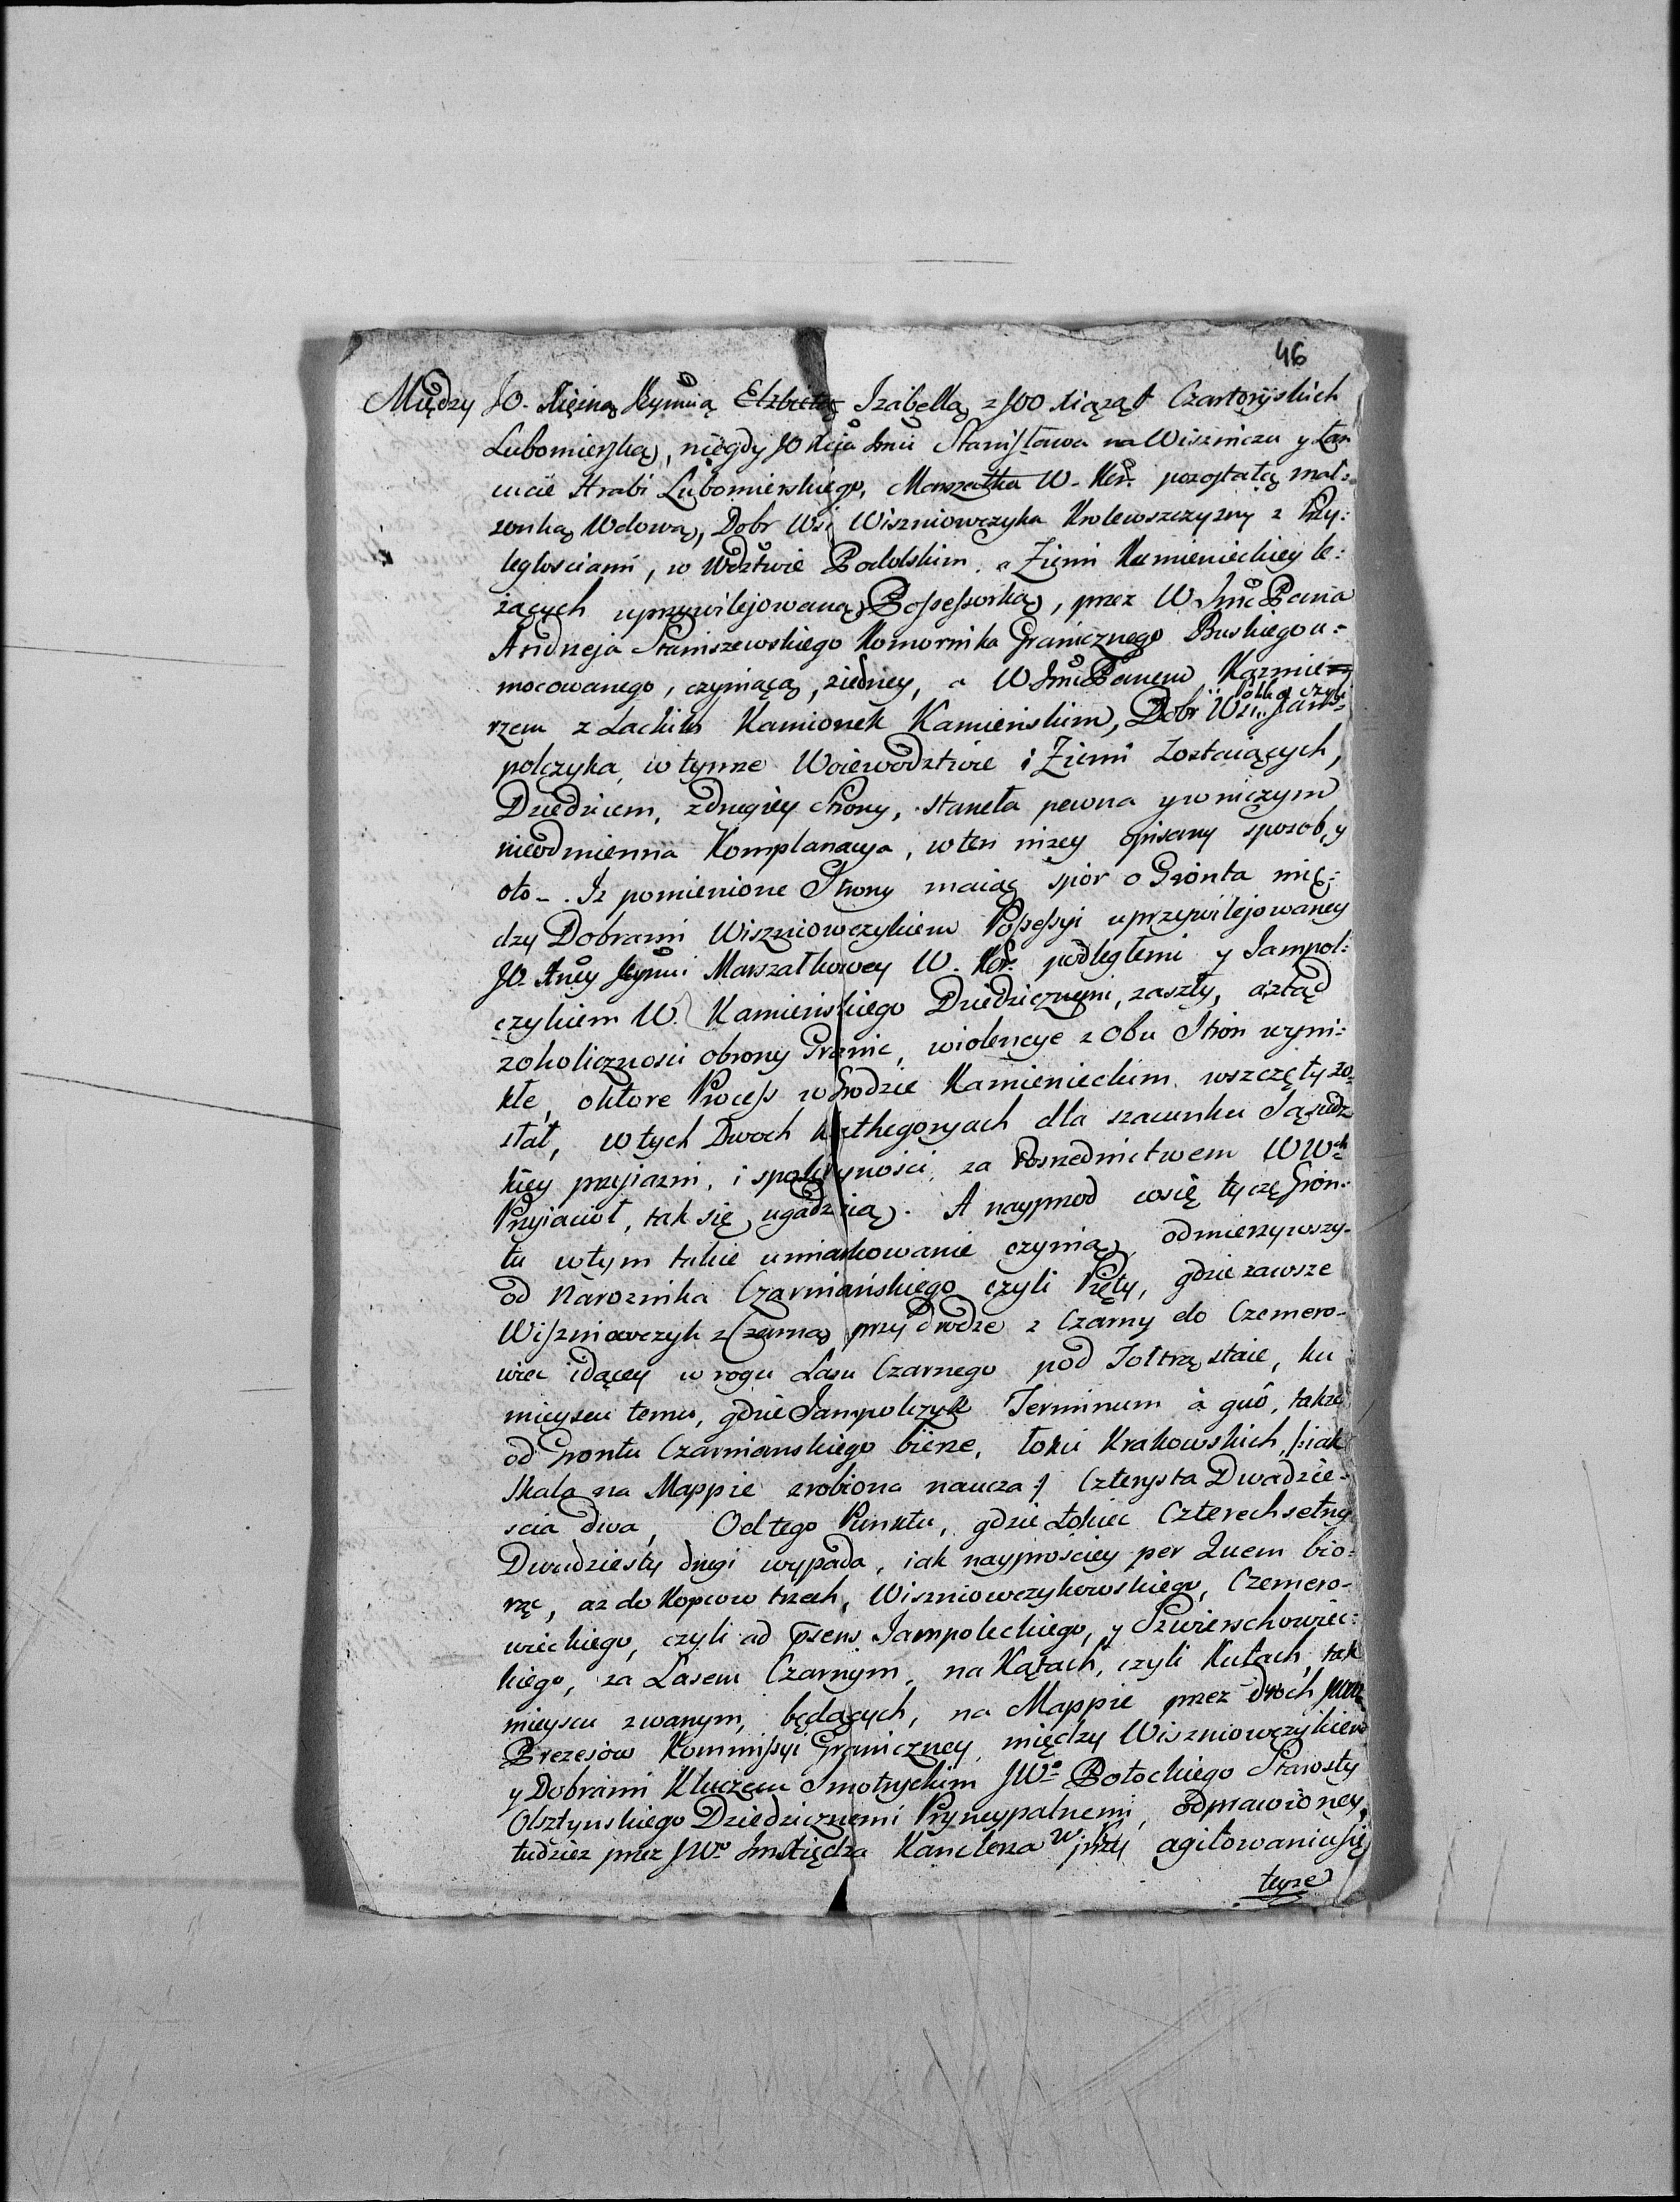 46
Między JO. Xiężną Jeymcią Elzbietą Izabellą z JOO Xiążąt Czartoryiskich
Lubomierską, niegdy JO Xcia Jmci Stanisława na Wiśniczu y Łan
cucie Hrabi Lubomierskiego, Marszałka W. Kor. pozostałą mał=
zonką Wdową, Dobr Wsi Wiszniowczyka Krolewszczyzny z Przy=
ległosciami, w Wdztwie Podolskim, a Ziemi Kamienieckiey le=
żących uprzywilejowaną Possessorką, przez W Jmci Pana
Andrzeja Staniszewskiego Komornika Granicznego Buskiego u=
mocowanego, czyniącą, ziedney, a W Jmci Panem Kazmie
rzem z Lachim Kamionek Kamieńskim, Dobr Wsi Jam=
polczyka, w tymze Woiewodztwie i Ziemi zostaiących,
Dziedzicem, zdrugiey Strony, staneła pewna y wniczym
nieodmienna Komplanacya, w ten nizey opisany sposob, y
oto -. Iz pomienione Strony maiąc spór o Gronta mię=
dzy Dobrami Wiszniowczykiem Possessyi uprzywilejowaney
JO. Xney Jeymci Marszałkowey W. Kor. podległemi y Jampol=
czykiem W. Kamieńskiego Dziedzicznemi, zaszły, a ztąd
zokoliczności obrony Granic, wiolencye z Obu Stron wyni=
kłe, oktore Process w Grodzie Kamienieckim wszczęty zo=
stał, w tych Dwoch Kathegoryach dla szacunku Sąsiedz
kiey przyiazni, i spokoyności, za Posrednictwem WWch
Przyiacioł, tak się ugadzaią. A nayprzod cosię tycze Gron=
tu w tym takie umiarkowanie czynią, odmierzywszy
od Narożnika Czarniańskiego czyli Pięty, gdzie zawsze
Wiszniowczyk z Czarną przy drodze z Czarny do Czemero=
wiec idącey w rogu Lasu Czarnego pod Tołtrą staie, ku
mieyscu temu, gdzie Jampolczyk Terminum à quô, takze
od Grontu Czarnianskiego bierze, łokci Krakowskich /: iak
Skala na Mappie zrobiona naucza :/ Czterysta Dwadzie=
scia dwa, Od tego Punktu, gdzie Łokiec Czterechsetny
Dwudziesty drugi wypada, iak nayprościey per Quem bio=
rąc, az do Kopcow trzech, Wiszniowczykowskiego, Czemero=
wieckiego, czyli ad psens Jampoleckiego, y Szwierschowiec=
kiego, za Lasem Czarnym, na Kątach, czyli Kutach, tak
mieyscu zwanym, będących, na Mappie przez dwoch
Prezesów Kommissyi Graniczney, między Wiszniowczykiem
y Dobrami Kluczem Smotryckim JWo Potockiego Starosty
Olsztynskiego Dziedzicznemi Pryncypalnemi, odprawioney,
tudziez przez JWo Jmć Xiędza Kanclerza W. przy agitowaniu się
teyze